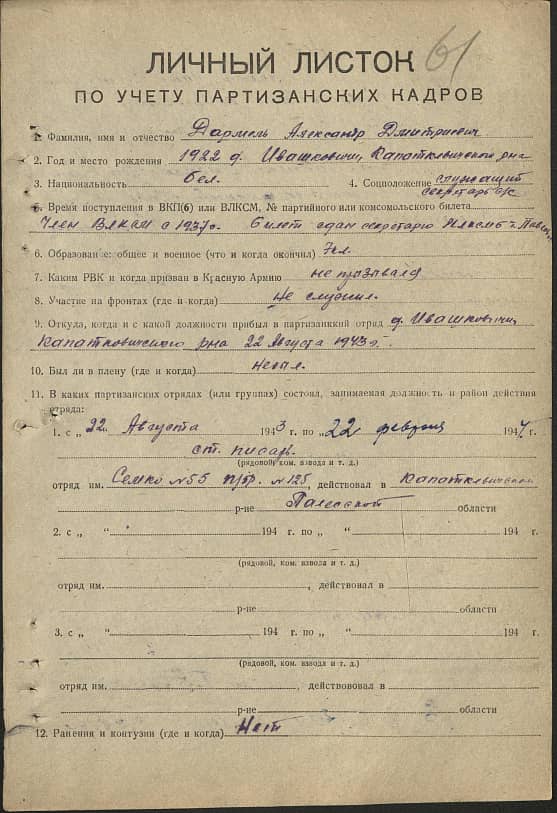 61
ЛИЧНЫЙ ЛИСТОК
ПО УЧЕТУ ПАРТИЗАНСКИХ КАДРОВ
1. Фамилия, имя и отчество Дармель Александр Дмитриевич
2. Год и место рождения 1922 д. Ивашковичи, Капаткевичского р-на
3. Национальность бел. 4. Соцположение служащий
секретарь с/с
5. Время поступления в ВКП(б) или ВЛКСМ, № партийного или комсомольского билета
Член ВЛКСМ с 1937 г. билет сдан секретарю
6. Образование: общее и военное (что и когда окончил) 7 кл.
7. Каким РВК и когда призван в Красную Армию не призывался
8. Участие на фронтах (где и когда) Не служил.
9. Откуда, когда и с какой должности прибыл в партизанский отряд д. Ивашковичи,
Капатковичского р-на 22 Августа 1943 г.
10. Был ли в плену (где и когда)
11. В каких партизанских отрядах (или группах) состоял, занимаемая должность и район действия
отряда:
1. с „22„ Августа 1943 г. по „22 февраля 1944 г.
ст. писарь
(рядовой, ком. взвода и т. д.)
отряд им. Семко № 55 п/бр. № 125, действовал в Капаткевичском
р-не Палесской области
2. с „ “ 194 г. по „ “ 194 г.
(рядовой, ком. взвода и т. д.)
отряд им. , действовал в
р-не области
3. с „ “ 194 г. по „ “ 194 г.
(рядовой, ком. взвода и т. д.)
отряд им. , действововал в
р-не области
12. Ранения и контузии (где и когда) Нет